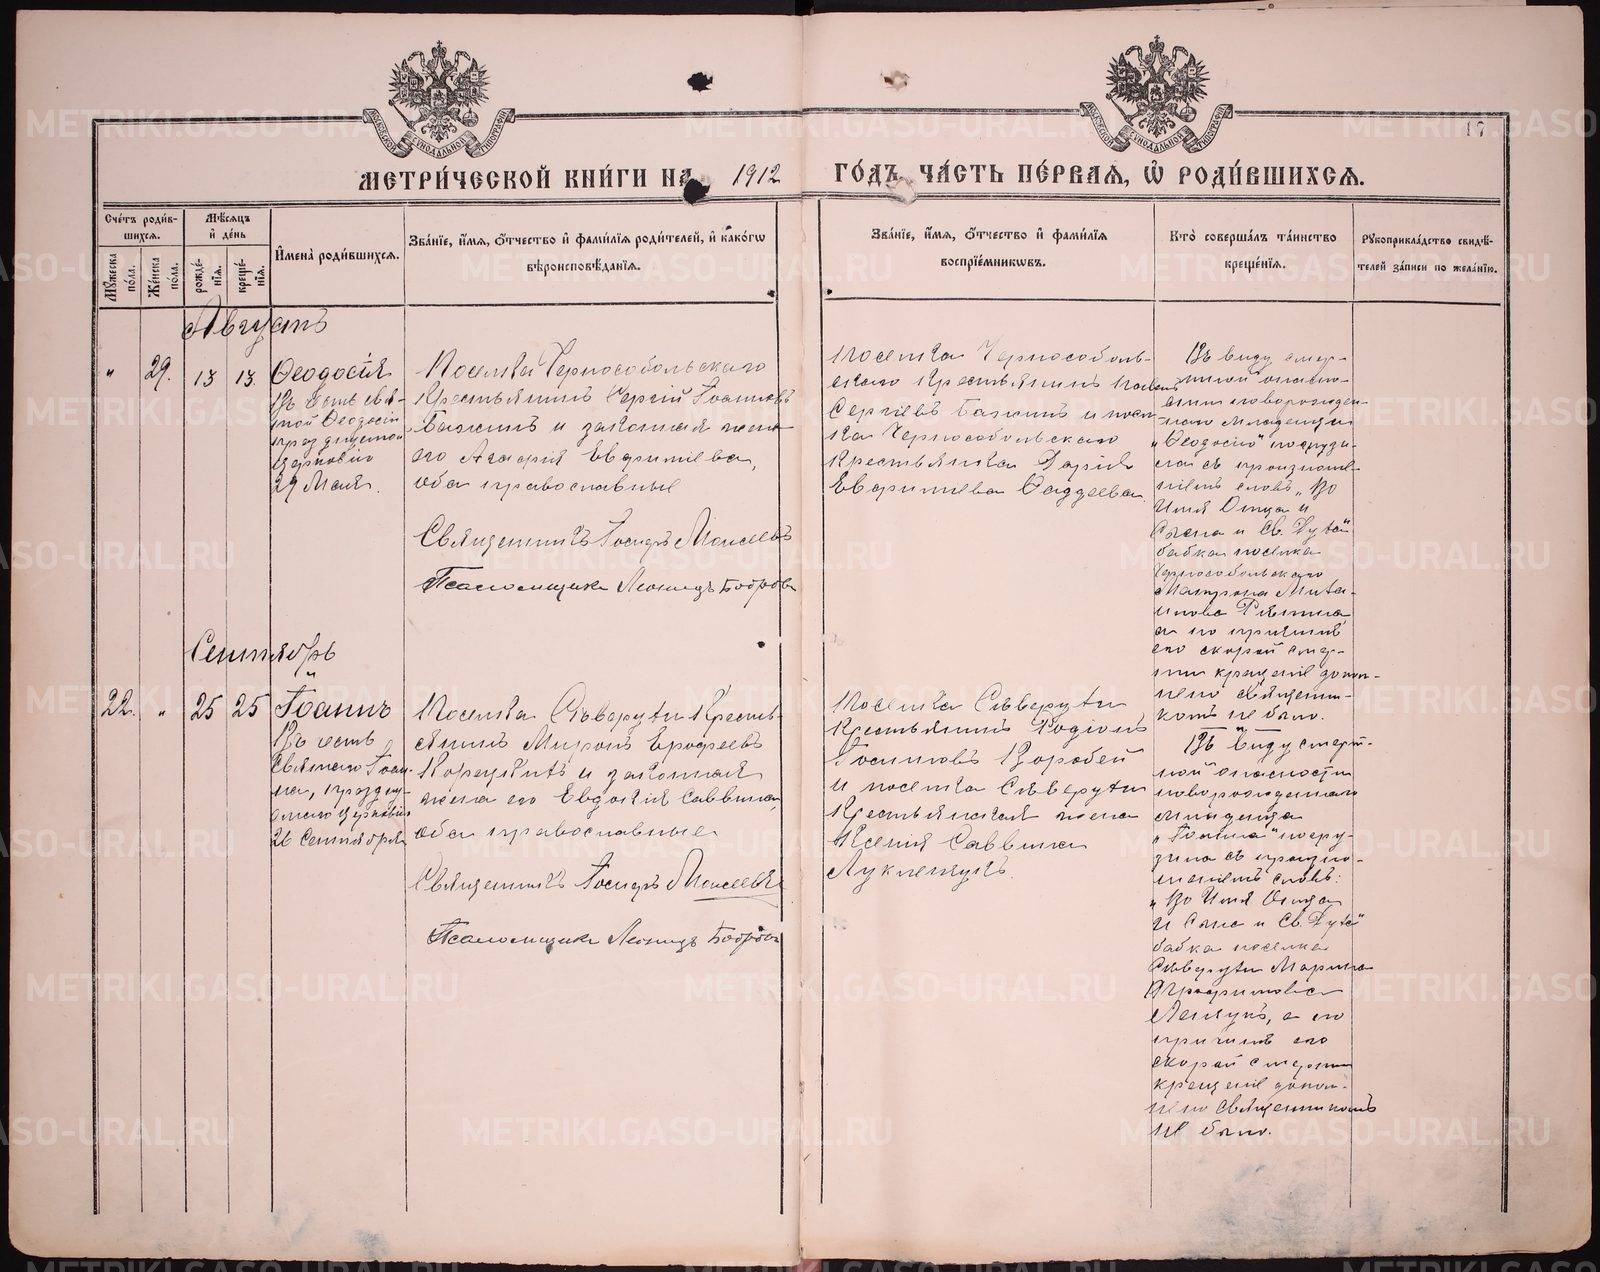 МЕТРИ́ЧЕСКОЙ КНИ́ГИ НА 1912 ГО́ДЪ, ЧА́СТЬ ПЕ́РВАЯ, Ѽ РОДИ́ВШИХСЯ.
17
Сче́тъ роди́в-
шихся.
Му́жеска по́ла.
Же́нска по́ла.
Мѣ́сяцъ
и҆ де́нь
рожде́-
нїя.
креще́-
нїя.
И҆мена̀ роди́вшихся.
Зва́нїе, и҆́мя, ѻ҆́тчество и҆ фами́лїя роди́телей, и҆ како́гѡ
вѣроисповѣ́данїя.
Зва́нїе, и҆́мя, ѻ҆́тчество и҆ фами́лїя
воспрїе́мникѡвъ.
Кто̀ соверша́лъ та́инство
креще́нїя.
Рꙋкоприкла́дство свидѣ́-
телей за́писи по жела́нїю.
Августъ
"
29.
13
13.
Ѳеодосія
Въ честь свя-
той Ѳеодосіи
празднуемой
церковію
29 Мая.
Поселка Чернособольскаго
Крестьянинъ Сергій Іоанновъ
Бажинъ и законная жена
его Агафія Евфимiева,
оба православные
Священникъ Іосифъ Моисеевъ
Псаломщикъ Леонидъ Бобровъ
Поселка Чернособоль-
скаго Крестьянинъ
Сергіевъ Бажинъ и посел-
ка Чернособольскаго
Крестьянка Дарія
Евфимiева Ѳаддеева.
Въ виду смер-
тной опасно-
сти новорожден-
наго младенца
„Ѳеодосію" погрузи-
ла съ произноше-
ніемъ словъ „Во
Имя Отца и
Сына и Св. Духа"
бабка поселка
Чернособольскаго
Матрона
а по причинѣ
его скорой смер-
ти крещеніе допол-
нено священни-
комъ не было.
Сентябрь
22.
"
25
25
Іоаннъ
Въ честь
Святаго Іоан-
на, праздну-
емаго церковію
26 Сентября
Поселка Сѣверухи Кресть-
янинъ Миронъ Ерофеевъ
и законная
жена его Евдокія Саввина
оба православные
Священникъ Іосифъ Моисеевъ
Псаломщикъ Леонидъ Бобровъ
Поселка Сѣверухи
Крестьянинъ Родіонъ
Воробей
и поселка Сѣверухи
Крестьянская жена
Ксенія Саввина
Въ виду смерт-
ной опасности
новорожденнаго
младенца
„Іоанна" погру-
зила съ произно-
шеніемъ словъ:
„Во Имя Отца
и Сына и Св. Духа"
бабка поселка
Сѣверухи Марина
а по
причинѣ его
скорой смерти
крещеніе допол-
нено Священникомъ
не было.
METRIKI.GASO-URAL.RU